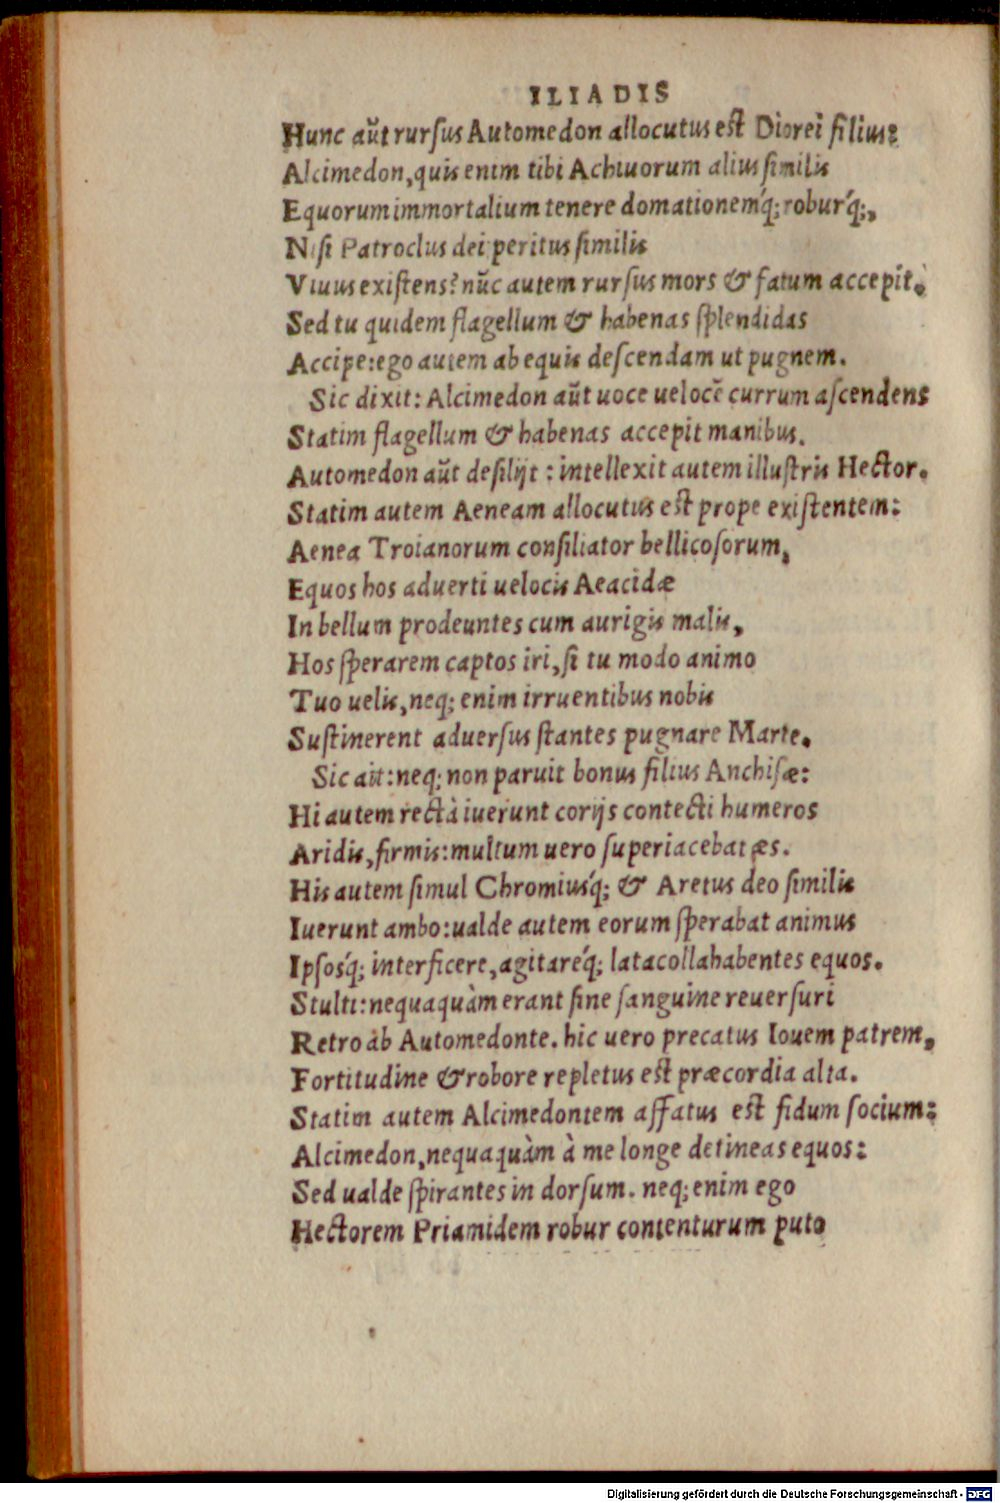 ILIADIS
Hunc aũt rursus Automedon allocutus est Diorei filius:
Alcimedon, quis enim tibi Achiuorum alius similis
Equorum immortalium tenere domationemq́; roburq́;,
Nisi Patroclus dei peritus similis
Viuus existens? nũc autem rursus mors & fatum accepit.
Sed tu quidem flagellum & habenas splendidas
Accipe: ego autem ab equis descendam ut pugnem.
Sic dixit: Alcimedon aũt uoce uelocẽ currum ascendens
Statim flagellum & habenas accepit manibus.
Automedon aũt desilijt: intellexit autem illustris Hector.
Statim autem Aeneam allocutus est prope existentem:
Aenea Troianorum consiliator bellicosorum,
Equos hos aduerti uelocis Aeacidæ
In bellum prodeuntes cum aurigis malis,
Hos sperarem captos iri, si tu modo animo
Tuo uelis, neq; enim irruentibus nobis
Sustinerent aduersus stantes pugnare Marte.
Sic ait: neq; non paruit bonus filius Anchisæ:
Hi autem rectà iuerunt corijs contecti humeros
Aridis, firmis: multum uero superiacebat æs.
His autem simul Chromiusq́; & Aretus deo similis
Iuerunt ambo: ualde autem eorum sperabat animus
Ipsosq́; interficere, agitareq́; latacollahabentes equos.
Stulti: nequaquàm erant sine sanguine reuersuri
Retro ab Automedonte. hic uero precatus Iouem patrem,
Fortitudine & robore repletus est præcordia alta.
Statim autem Alcimedontem affatus est fidum socium:
Alcimedon, nequaquàm à me longe detineas equos:
Sed ualde spirantes in dorsum. neq; enim ego
Hectorem Priamidem robur contenturum puto
Digitalisierung gefördert durch die Deutsche Forschungsgemeinschaft - DFG